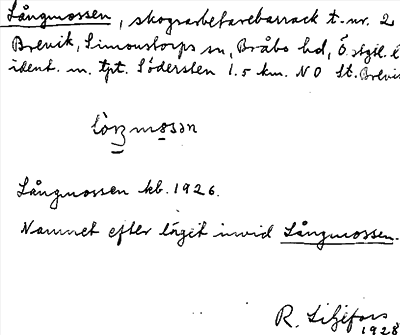 Långmossen, skogsarbetarebarrack t. nr. 2
Brevik, Simonstorps sn, Bråbo hd, Ö.
ident. m. tpt. Södersten 1.5 km. NO St. Brevik
Långmossen kb. 1926.
Namnet efter läget invid Långmossen.
R. Liljefors
1928